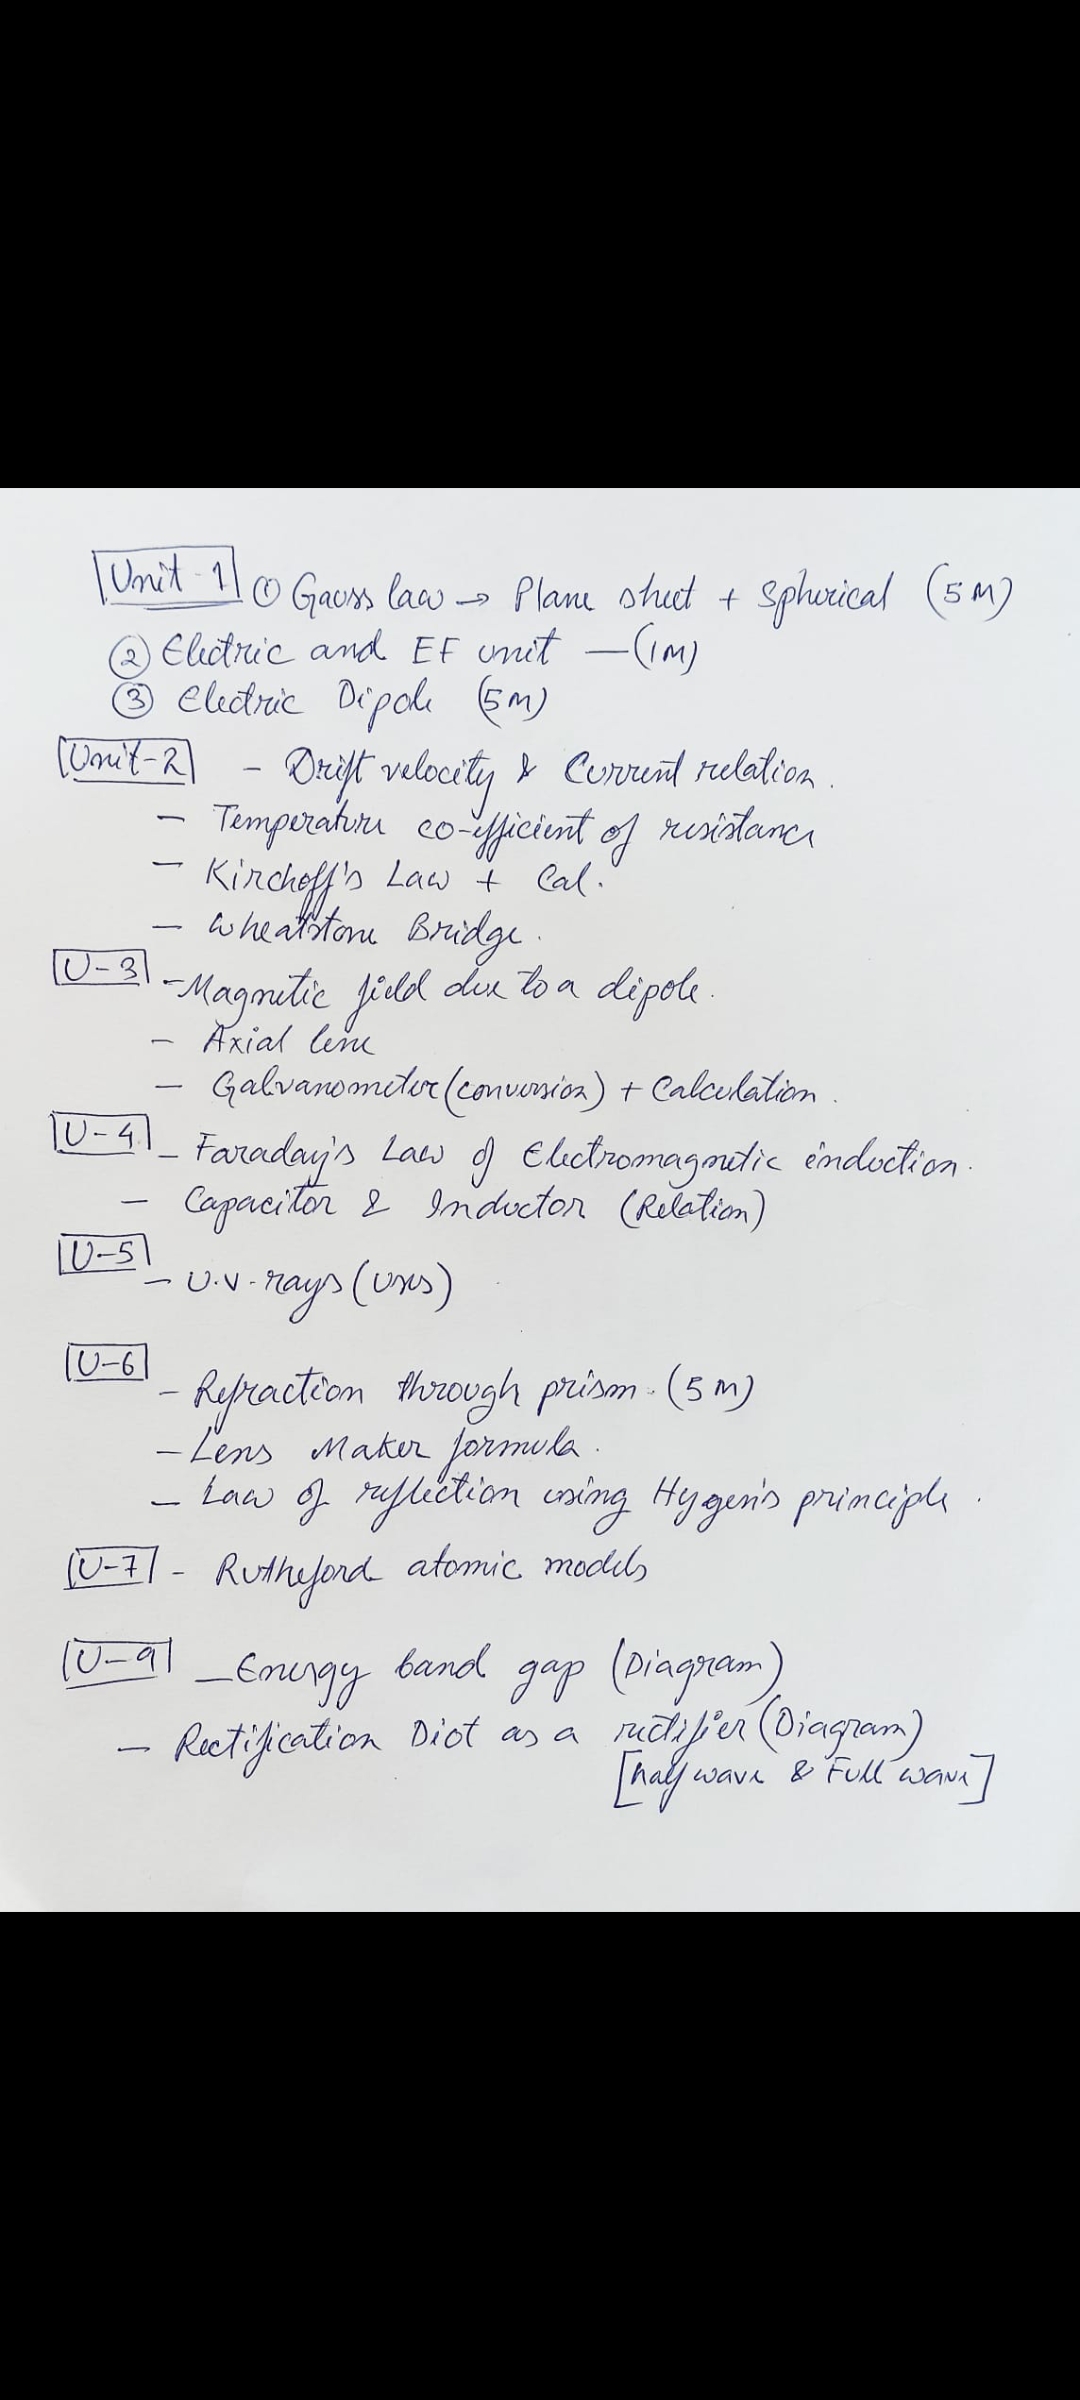 Unit-1 ① Gauss law → Plane sheet + Spherical (5M)
② Electric and EF unit — (1M)
③ Electric Dipole (5M)
Unit-2 - Drift velocity & Current relation.
- Temperature co-efficient of resistance
- Kirchoff's Law + Cal.
- Wheatstone Bridge.
U-3 - Magnetic field due to a dipole.
- Axial line
- Galvanometer (conversion) + Calculation.
U-4 - Faraday's Law of Electromagnetic induction.
- Capacitor & Inductor (Relation)
U-5
- U.V-rays (uses)
U-6
- Refraction through prism. (5M)
- Lens Maker formula.
- Law of reflection using Hygen's principle.
U-7 - Rutheford atomic models
U-9 - Energy band gap (Diagram)
- Rectification Diot as a rectifier (Diagram)
[half wave & Full wave]